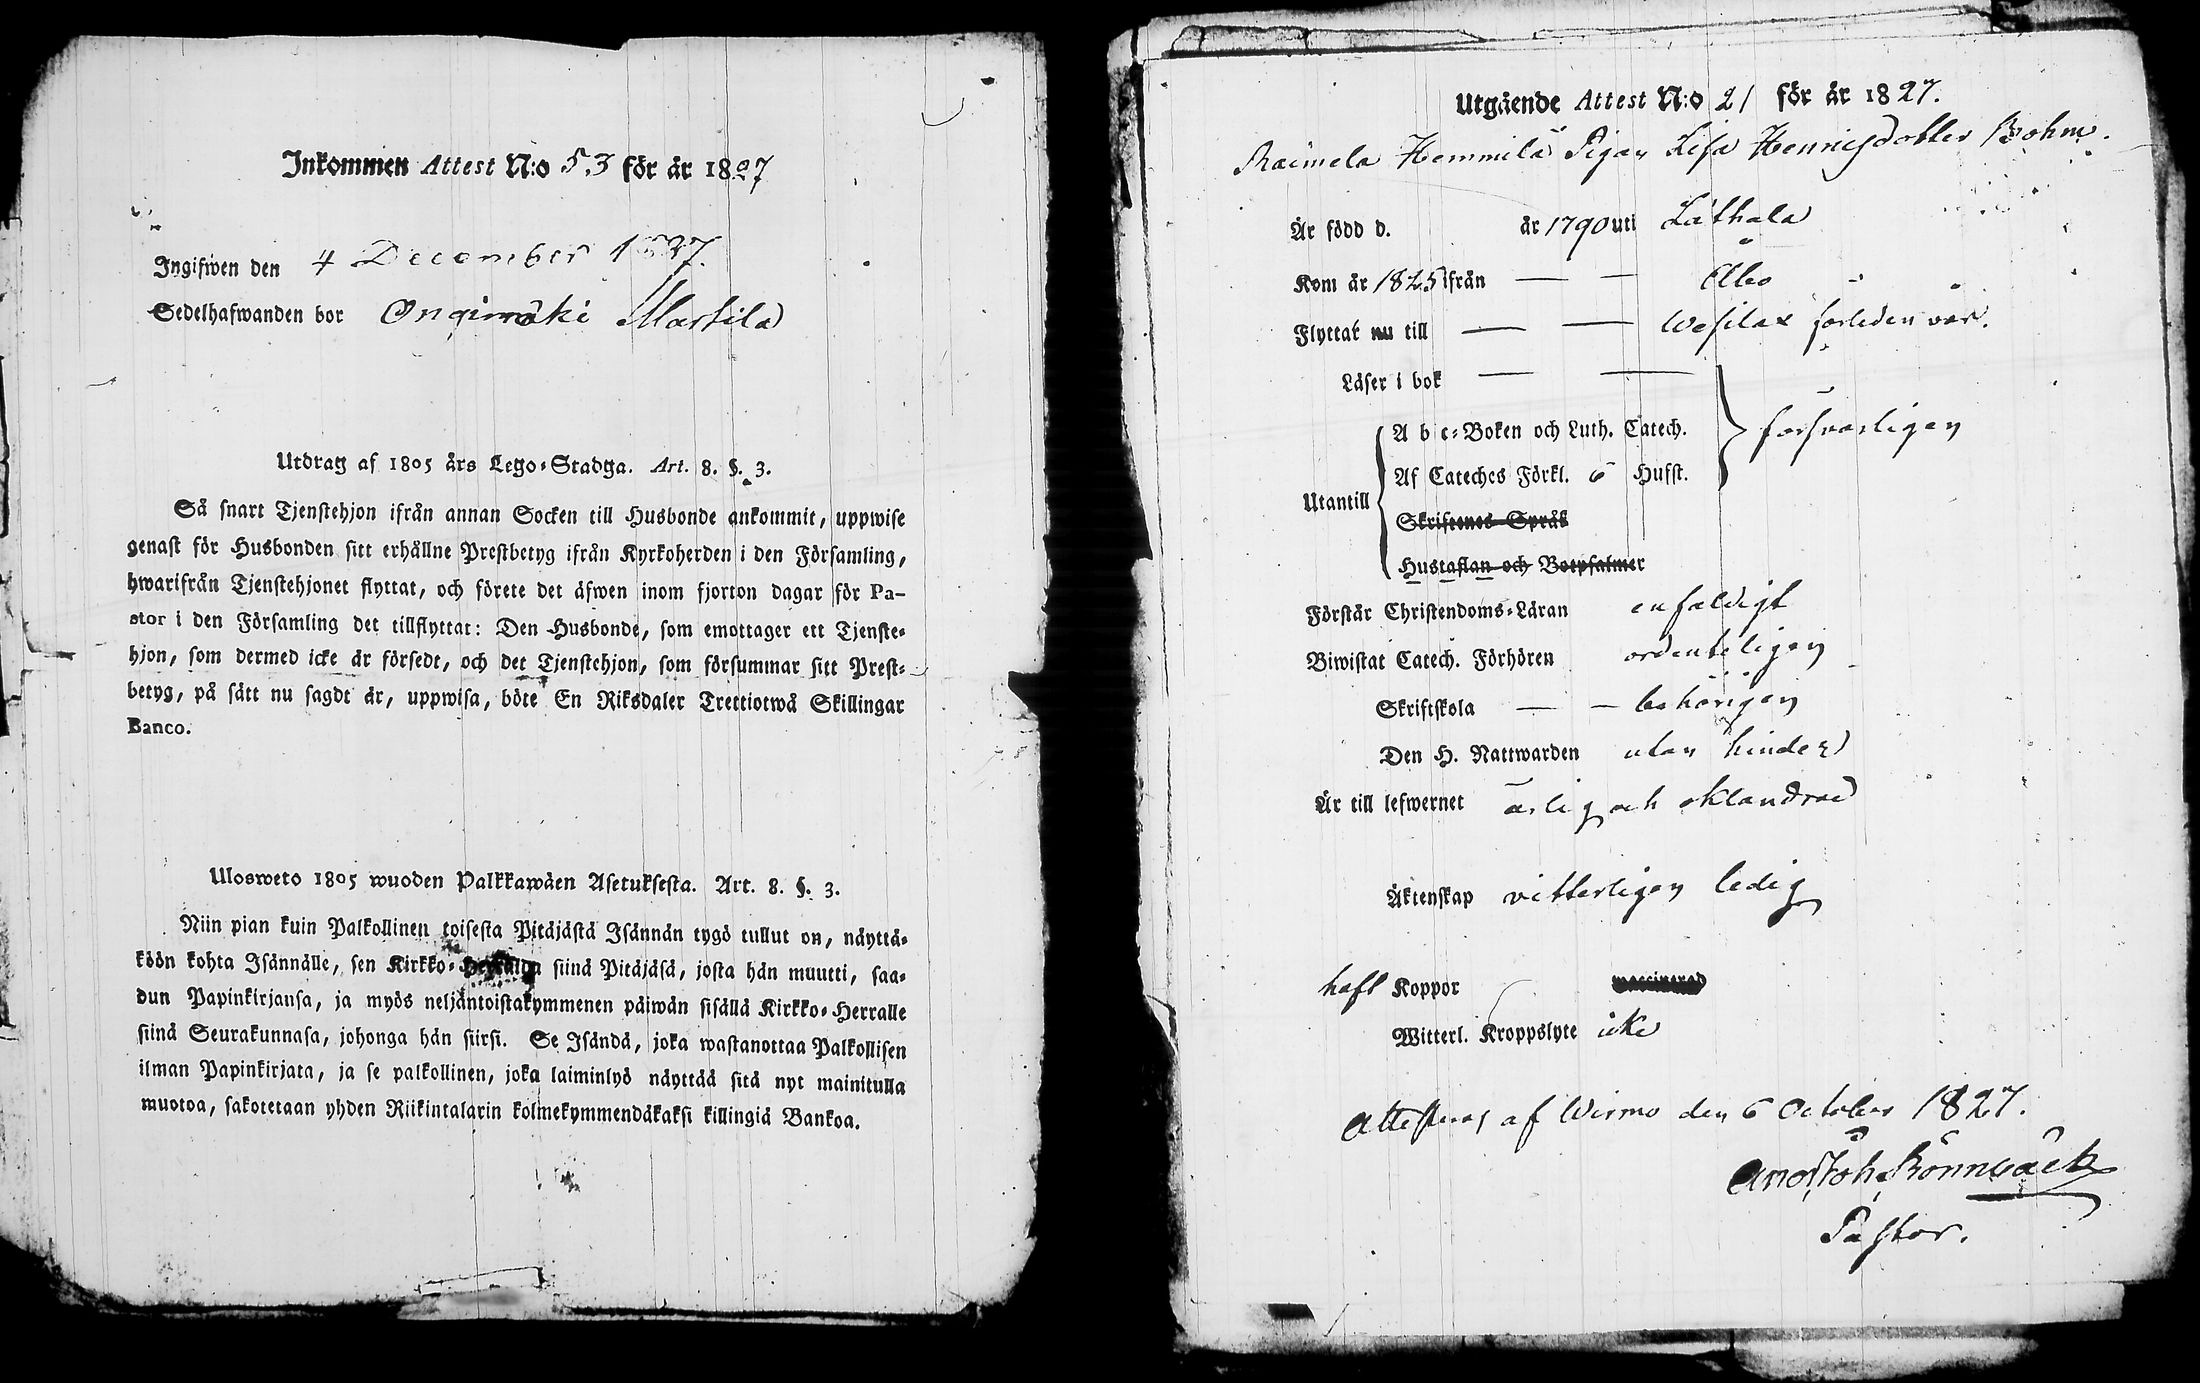 Inkommen Attest N:o 53 för år 1827
Ingifwen den 4 December 1827.
Sedelhafwanden bor Ongimäki Martila
Utdrag af 1805 års Lego-Stadga. Art. 8. §. 3.
Så snart Tjenstehjon ifrån annan Socken till Husbonde ankommit, uppwise
genast för Husbonden sitt erhållne Prestbetyg ifrån Kyrkoherden i den Församling,
hwarifrån Tjenstehjonet flyttat, och förete det äfwen inom fjorton dagar för Pa-
stor i den Församling det tillflyttat: Den Husbonde, som emottager ett Tjenste-
hjon, som dermed icke är försedt, och det Tjenstehjon, som försummar sitt Prest-
betyg, på sätt nu sagdt är, uppwisa, böte En Riksdaler Trettiotwå Skillingar
Banco.
Ulosweto 1805 wuoden Palkkawäen Asetuksesta. Art. 8. §. 3.
Niin pian kuin Palkollinen toisesta Pitäjästä Isännän tygö tullut on, näyttä-
köön kohta Isännälle, sen Kirkko-Herralda siinä Pitäjäsä, josta hän muutti, saa-
dun Papinkirjansa, ja myös neljäntoistakymmenen päiwän sisällä Kirkko-Herralle
siinä Seurakunnasa, johonga hän siirsi. Se Isändä, joka wastanottaa Palkollisen
ilman Papinkirjata, ja se palkollinen, joka laiminlyö näyttää sitä nyt mainitulla
muotoa, sakotetaan yhden Riikintalarin kolmekymmendäkaksi killingiä Bankoa.
Utgående Attest N:o 21 för år 1827.
Raimela Hemmilä Pigan Lisa Henricsdotter Bohm.
Är född d. år 1790 uti Låthala
Kom år 1825 ifrån — — Åbo
Flyttat nu till — — Wesilax förleden vår.
Läser i bok — —
A b c-Boken och Luth. Catech. försvarligen
Af Cateches Förkl. 6 Hufst.
Utantill
Skriftenes Språk
Hustaflan och Botpsalmer
Förstår Christendoms-Läran enfaldigt
Biwistat Catech. Förhören ordenteligen
Skriftskola — — behörigen
Den H. Nattwarden utan hinder
Är till lefwernet ärlig och oklandrad
Äktenskap vitterligen ledig
haft Koppor waccinerad
Witterl. Kroppslyte icke
Attesteras af Wirmo den 6 October 1827.
And. Joh. Rönnbäck
Pastor.